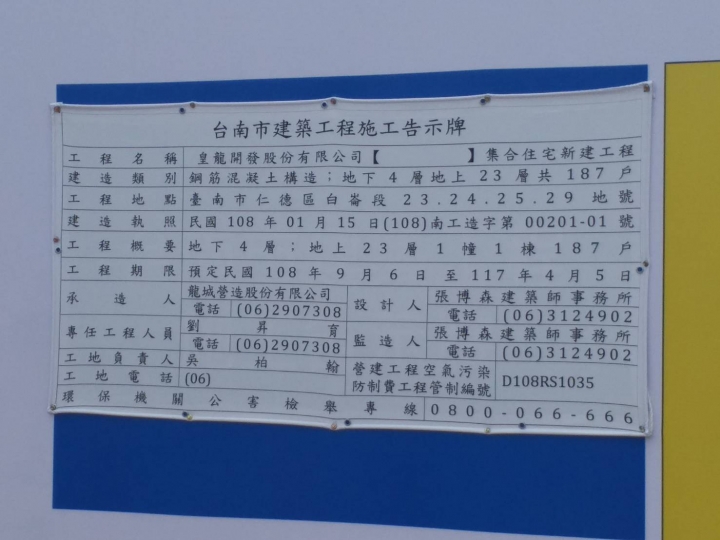 台南市建築工程施工告示牌
工程名稱 皇龍開發股份有限公司【 】集合住宅新建工程
建造類別 鋼筋混凝土構造;地下4層地上23層共187戶
工程地點 臺南市仁德區白崙段23.24.25.29地號
建造執照 民國108年01月15日(108)南工造字第00201-01號
工程概要 地下4層;地上23層1幢1棟187戶
工程期限 預定民國108年9月6日至117年4月5日
承造人 龍城營造股份有限公司 電話 (06)2907308
設計人 張博森建築師事務所 電話 (06)3124902
專任工程人員 劉昇育 電話 (06)2907308
監造人 張博森建築師事務所 電話 (06)3124902
工地負責人 吳柏翰
工地電話 (06)
營建工程空氣污染
防制費工程管制編號 D108RS1035
環保機關公害檢舉專線 0800-066-666